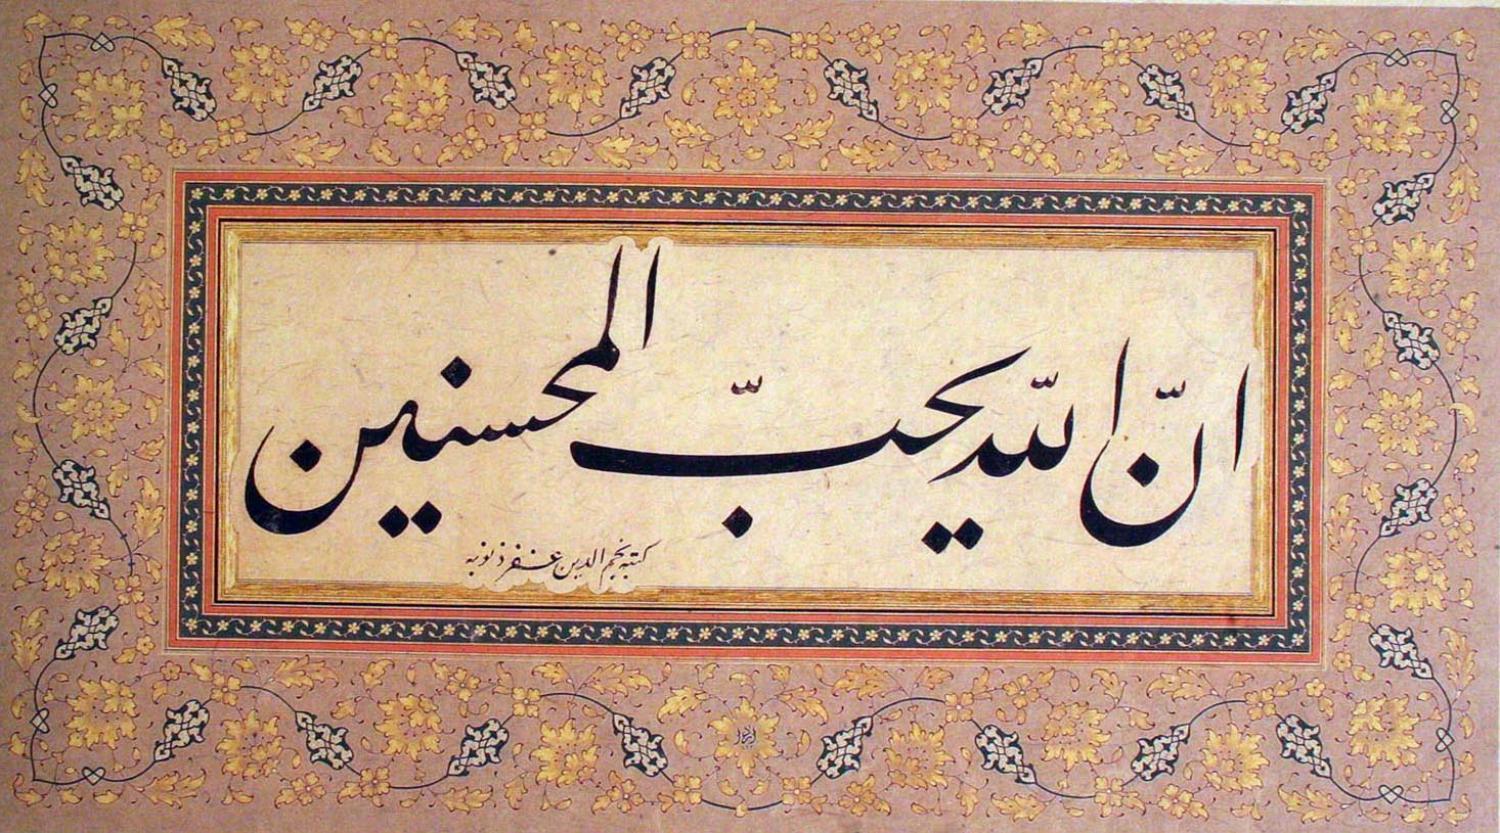 انّ الله يحبّ المحسنين
كتبه نجم الدين غفر ذنوبه